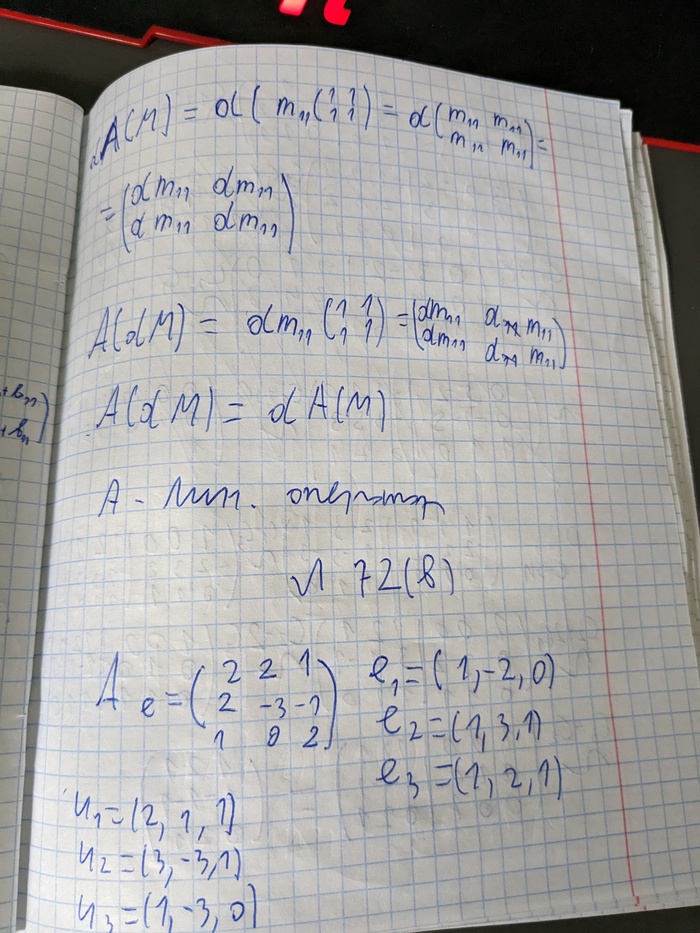 αA(M) = α( m₁₁(1 1 1 1) = α(m₁₁ m₁₁ m₁₁ m₁₁) =
= (αm₁₁ αm₁₁ αm₁₁ αm₁₁)
A(αM) = αm₁₁ (1 1 1 1) = (αm₁₁ α m₁₁ αm₁₁ α m₁₁)
+b₁₁)
A(αM) = αA(M)
A - лин. оператор
№ 72(в)
A e = (2 2 1 2 -3 -1 1 0 2)
e₁ = (1, -2, 0)
e₂ = (1, 3, 1)
e₃ = (1, 2, 1)
u₁ = (2, 1, 1)
u₂ = (3, -3, 1)
u₃ = (1, -3, 0)